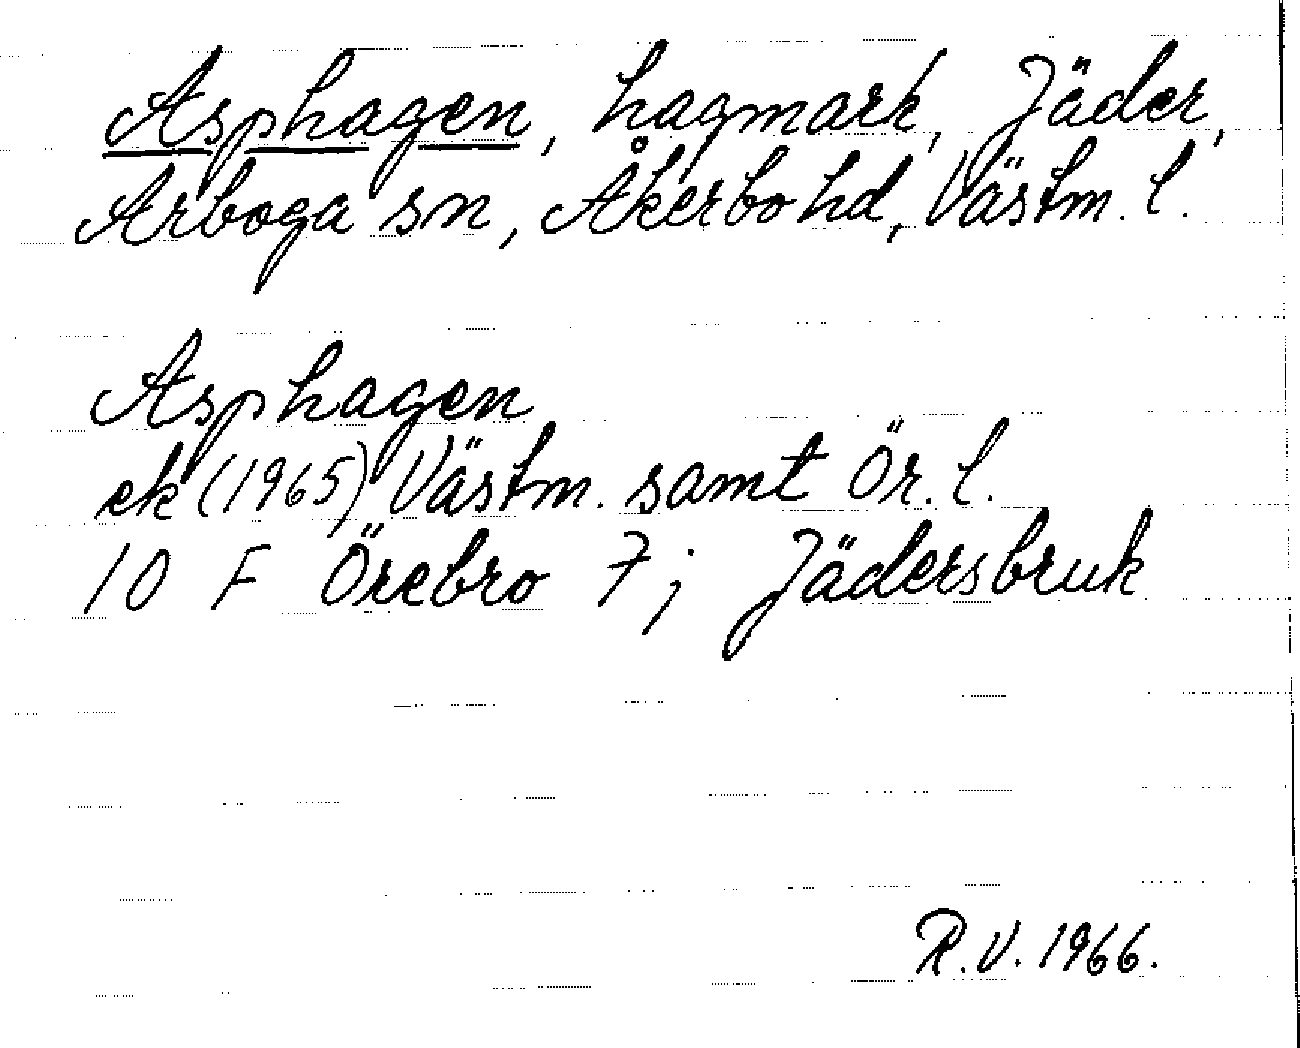 Asphagen, hagmark, Jäder,
Arboga sn, Åkerbo hd, Västm. l.
Asphagen
ek (1965) Västm. samt Ör. l.
10 F Örebro 7 j Jädersbruk
R.V. 1966.